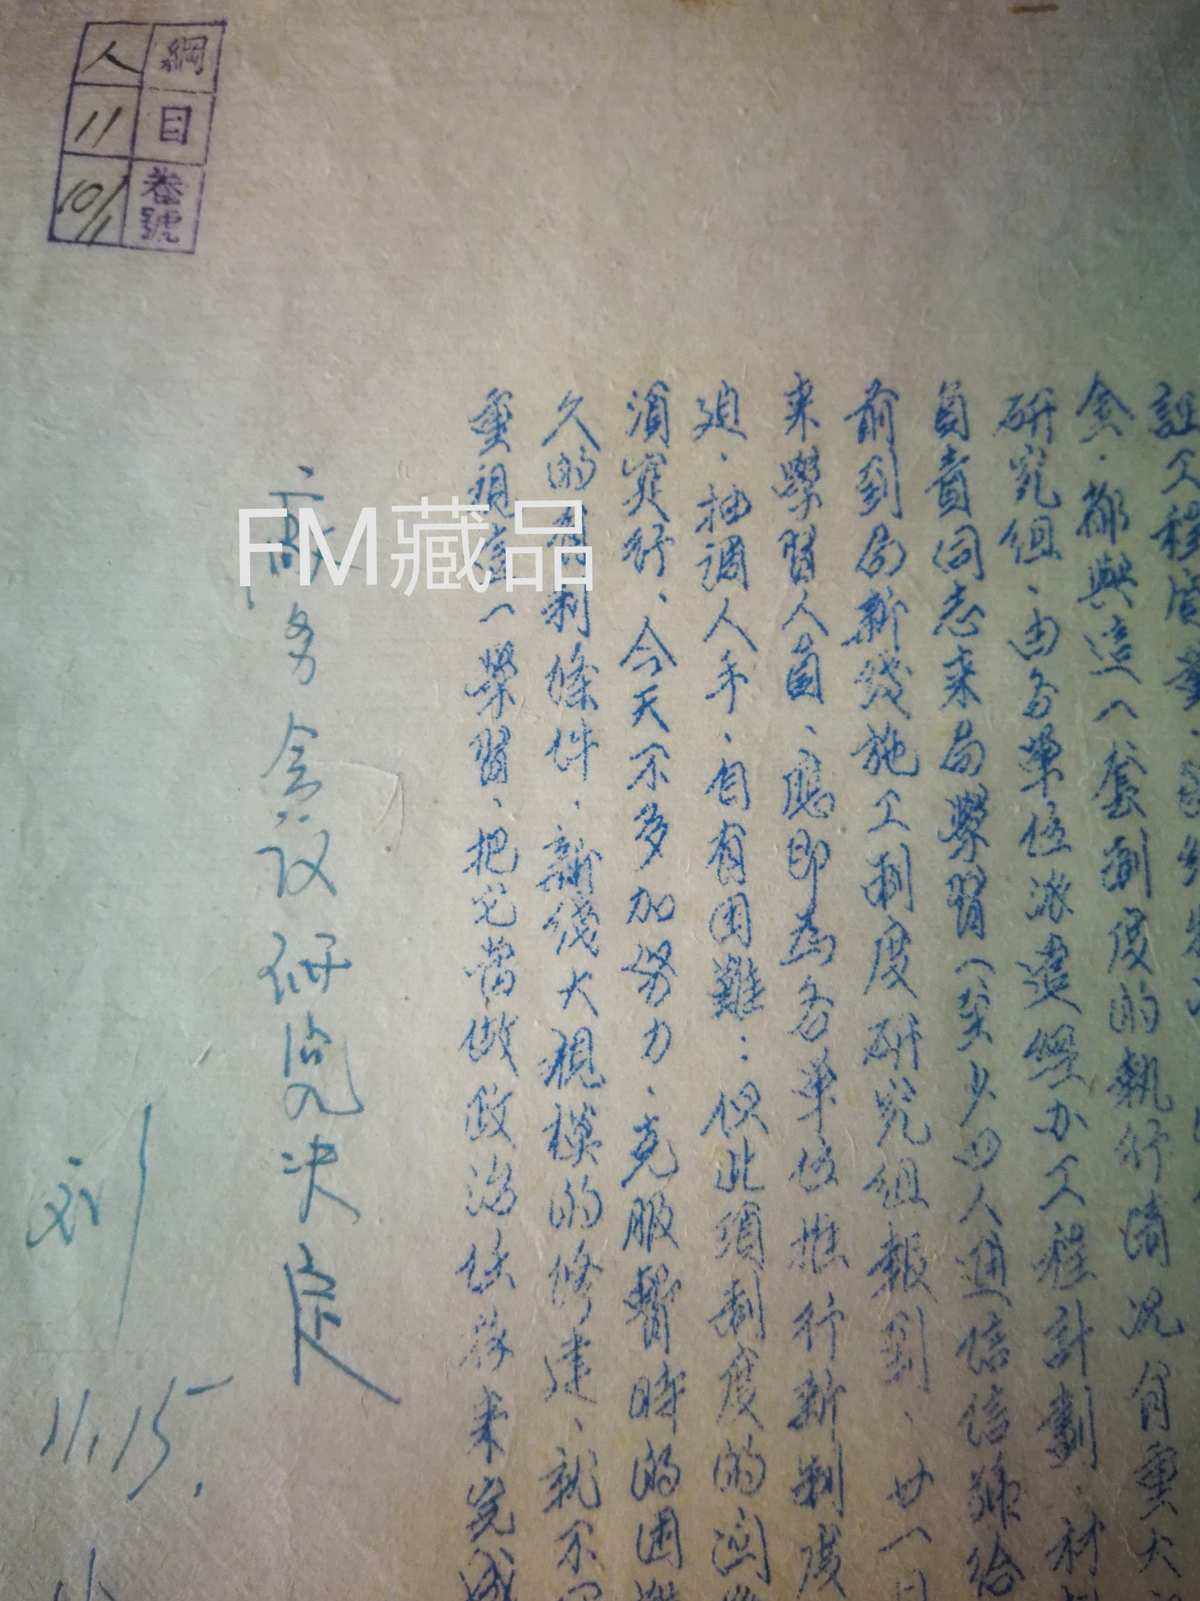 証工程質量
会、都與這一套制度的執行情况有重大
研究組、由各單位派遣經办工程計劃、材
負責同志来局學習(至少四人連信信號給
前到局新线施工制度研究組報到、廿一日
来學習人員、應即為各單位推行新制度
迫、抽調人手、自有困難:但此項制度的
須实行、今天不多加努力、克服暫時的困難
久的有利條件、新线大規模的修建、就不
重視這一學習、把它當做政治任務来完成
务会议研究决定
刘
11.15.
綱目卷號
人 11 10/11
FM藏品